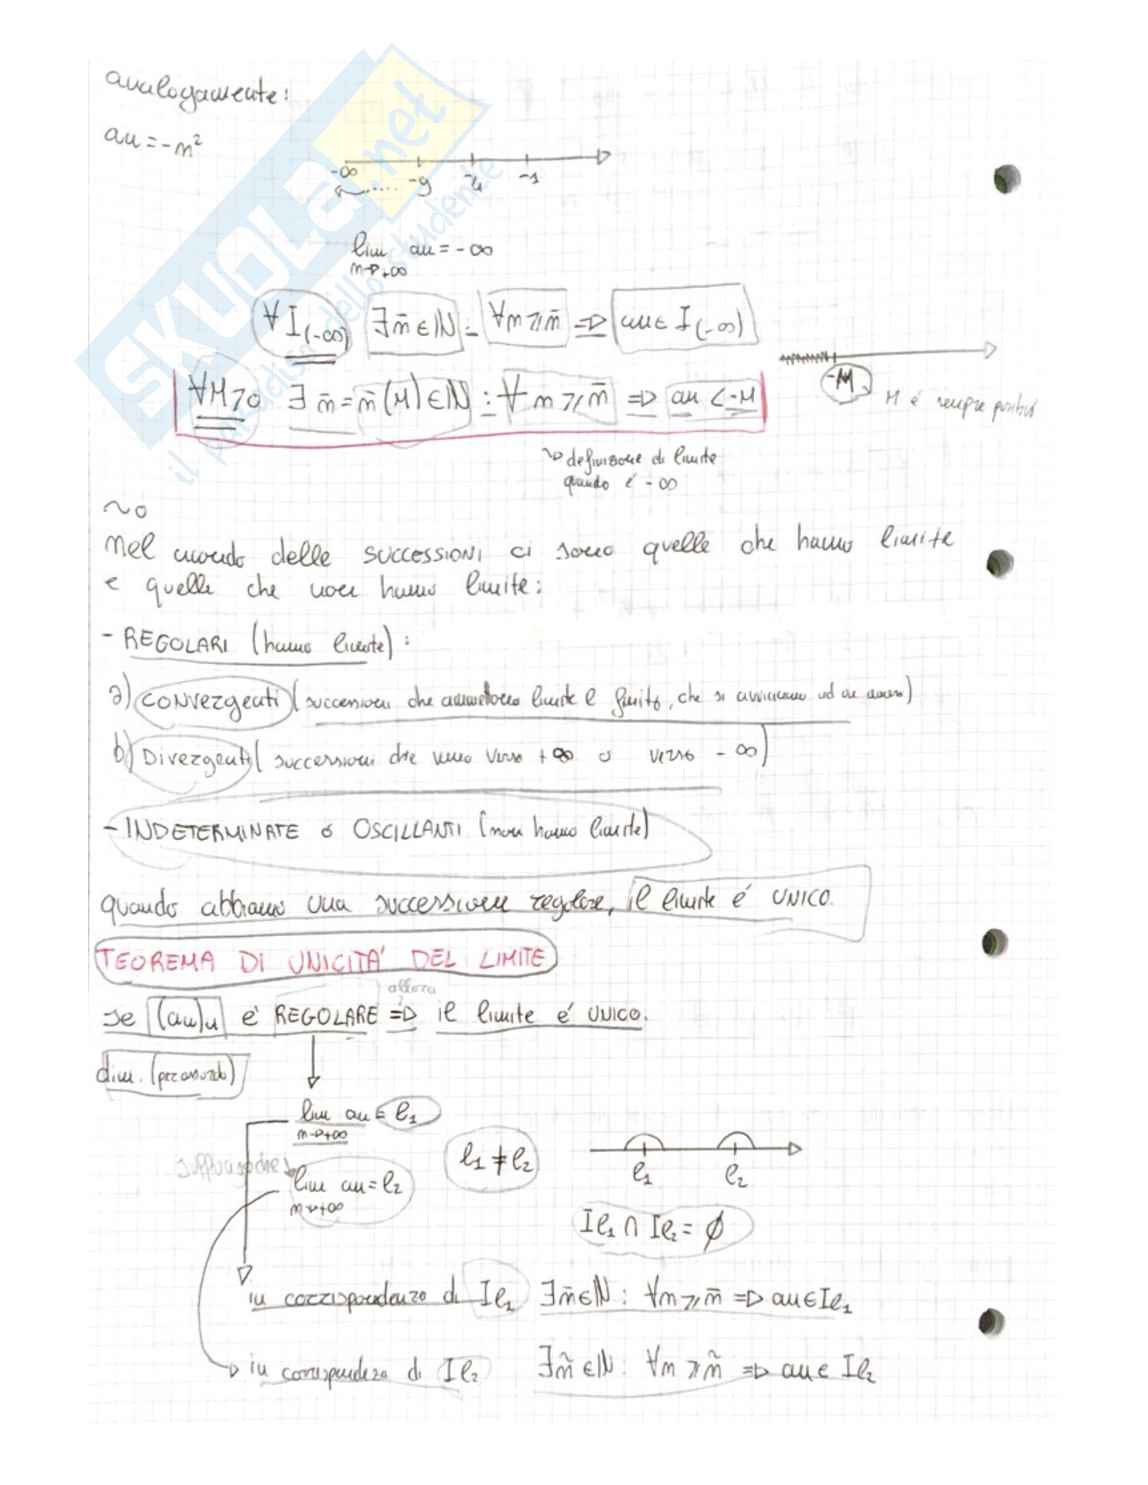 analogamente:
an = -n²
-∞ -9 -4 -1
lim an = -∞
n→+∞
∀ I(-∞) ∃ n̄ ∈ ℕ : ∀n ⩾ n̄ ⇒ an ∈ I(-∞)
∀M>0 ∃ n̄ = n̄(M) ∈ ℕ : ∀ n ⩾ n̄ ⇒ an < -M
-M
M è sempre positivo
↪ definizione di limite
quando è -∞
Nel mondo delle SUCCESSIONI ci sono quelle che hanno limite
e quelle che non hanno limite:
- REGOLARI (hanno limite):
a) convergenti (successioni che ammettono limite e finito, che si avvicinano ad un)
b) Divergenti (successioni che vanno verso +∞ o verso -∞)
- INDETERMINATE o OSCILLANTI (non hanno limite)
quando abbiamo una successione regolare, il limite é UNICO.
TEOREMA DI UNICITA' DEL LIMITE
allora
se (an)n e' REGOLARE ⇒ il limite é UNICO.
dim. (per assurdo)
lim an = ℓ₁
n→+∞
ℓ₁ ≠ ℓ₂
ℓ₁ ℓ₂
lim an = ℓ₂
n→+∞
Iℓ₁ ∩ Iℓ₂ = ∅
in corrispondenza di Iℓ₁ ∃n̄∈ℕ : ∀n ⩾ n̄ ⇒ an ∈ Iℓ₁
in corrispondenza di Iℓ₂ ∃ñ ∈ℕ : ∀n ⩾ ñ ⇒ an ∈ Iℓ₂
SKUOLA.net
il paradiso dello studente